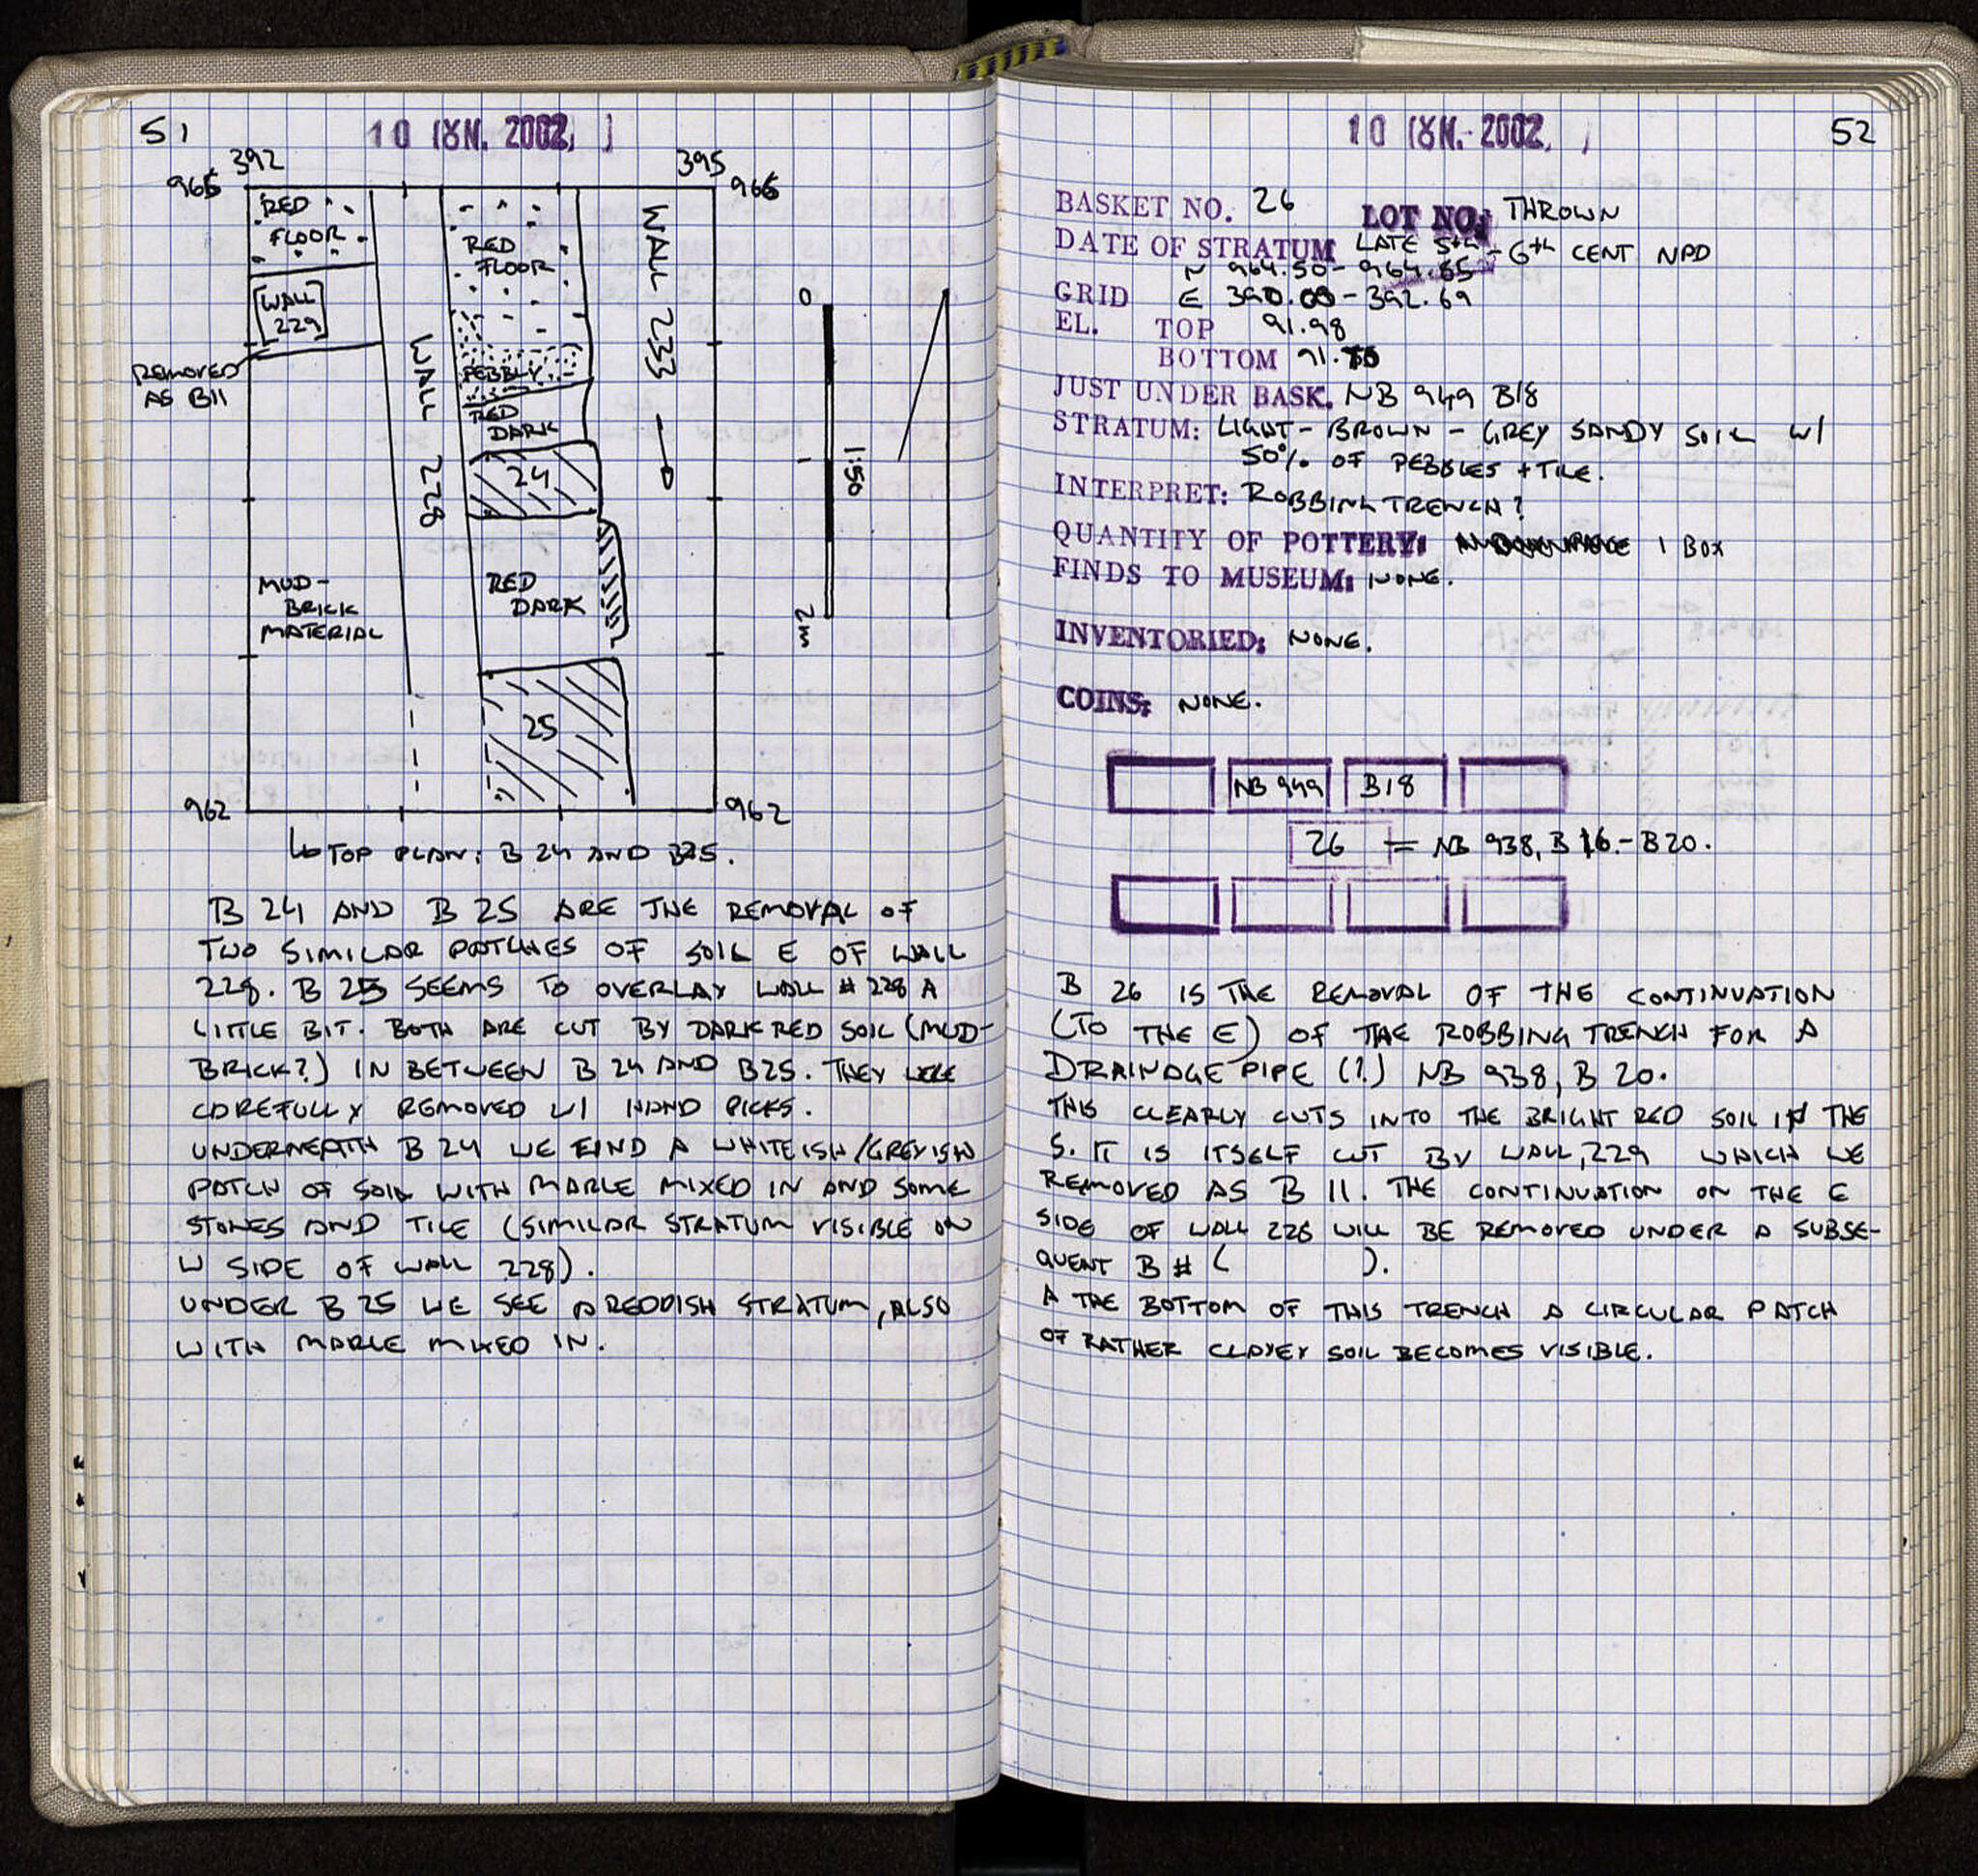 51
10 IOYN. 2002
392
395
965
966
RED
FLOOR
WALL
229
REMOVED
AS B11
WALL 228
RED
FLOOR
PEBBLY
RED
DARK
24
RED
DARK
25
WALL 233
MUD-
BRICK
MATERIAL
0
1
2m
1:50
962
962
TOP PLAN: B 24 AND B25.
B 24 AND B 25 ARE THE REMOVAL OF
TWO SIMILAR PATCHES OF SOIL E OF WALL
228. B 25 SEEMS TO OVERLAY WALL # 228 A
LITTLE BIT. BOTH ARE CUT BY DARK RED SOIL (MUD-
BRICK?) IN BETWEEN B 24 AND B25. THEY WERE
CAREFULLY REMOVED W/ HAND PICKS.
UNDERNEATH B 24 WE FIND A WHITEISH/GREYISH
PATCH OF SOIL WITH MARLE MIXED IN AND SOME
STONES AND TILE (SIMILAR STRATUM VISIBLE ON
W SIDE OF WALL 228).
UNDER B 25 WE SEE A REDDISH STRATUM, ALSO
WITH MARLE MIXED IN.
10 IOYN. 2002
52
BASKET NO. 26 LOT NO: THROWN
DATE OF STRATUM LATE 5th - 6th CENT NPD
N 964.50 - 964.85
GRID E 390.00 - 392.69
EL. TOP 91.98
BOTTOM 91.
JUST UNDER BASK. NB 949 B18
STRATUM: LIGHT - BROWN - GREY SANDY SOIL W/
50% OF PEBBLES + TILE.
INTERPRET: ROBBING TRENCH?
QUANTITY OF POTTERY: 1 BOX
FINDS TO MUSEUM: NONE.
INVENTORIED: NONE.
COINS: NONE.
NB 949 B18
26 = NB 938, B 16.- B20.
B 26 IS THE REMOVAL OF THE CONTINUATION
(TO THE E) OF THE ROBBING TRENCH FOR A
DRAINAGE PIPE (?) NB 938, B 20.
THIS CLEARLY CUTS INTO THE BRIGHT RED SOIL IN THE
S. IT IS ITSELF CUT BY WALL, 229 WHICH WE
REMOVED AS B 11. THE CONTINUATION ON THE E
SIDE OF WALL 228 WILL BE REMOVED UNDER A SUBSE-
QUENT B # ( ).
A THE BOTTOM OF THIS TRENCH A CIRCULAR PATCH
OF RATHER CLAYEY SOIL BECOMES VISIBLE.